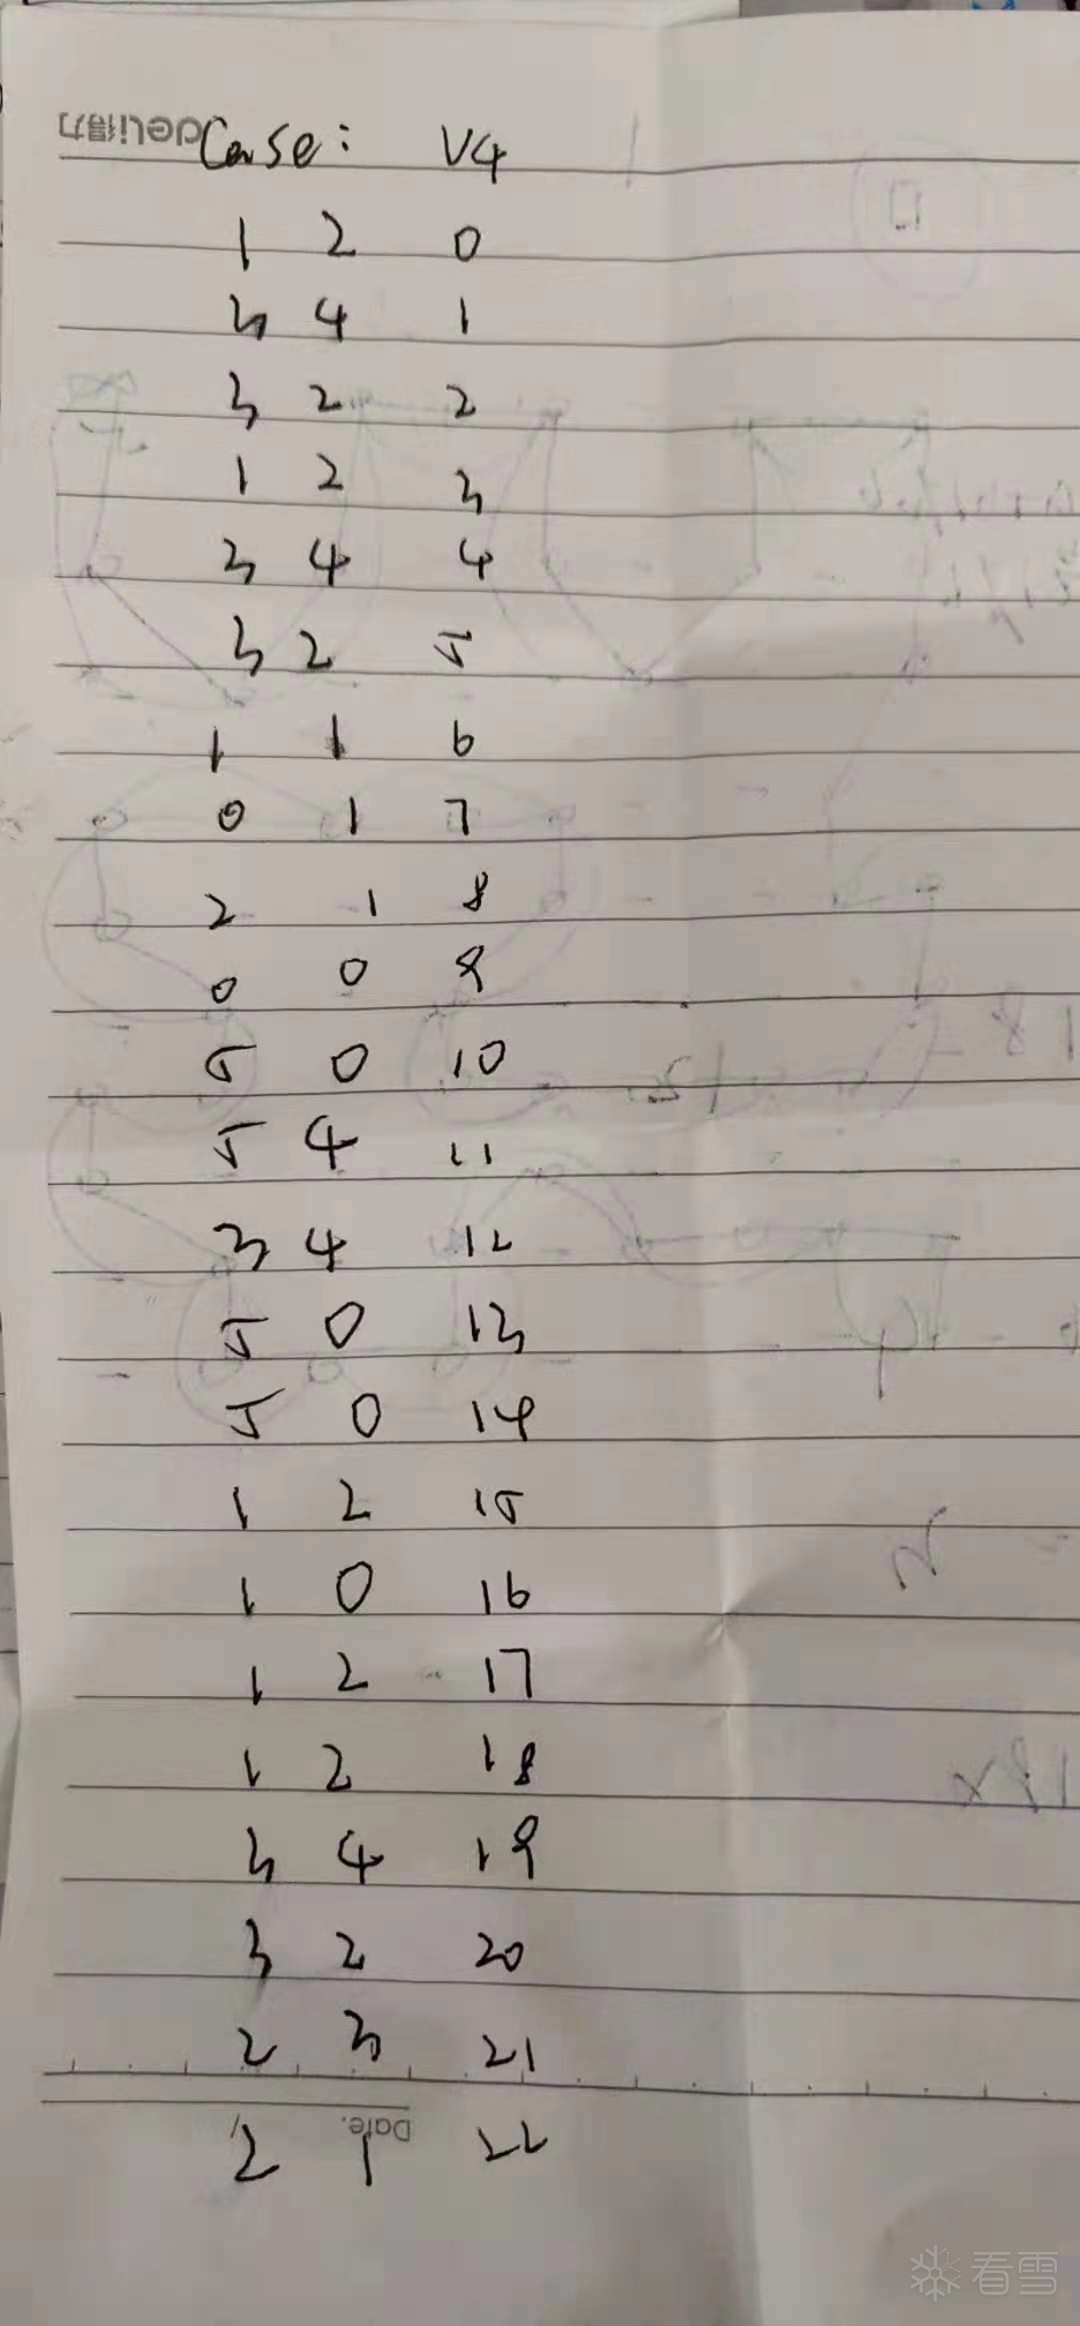 deli得力
Case: V4
1 2 0
3 4 1
3 2 2
1 2 3
3 4 4
3 2 5
1 1 6
0 1 7
2 1 8
0 0 9
5 0 10
5 4 11
3 4 12
5 0 13
5 0 14
1 2 15
1 0 16
1 2 17
1 2 18
3 4 19
3 2 20
2 3 21
Date.
2 1 22
看雪